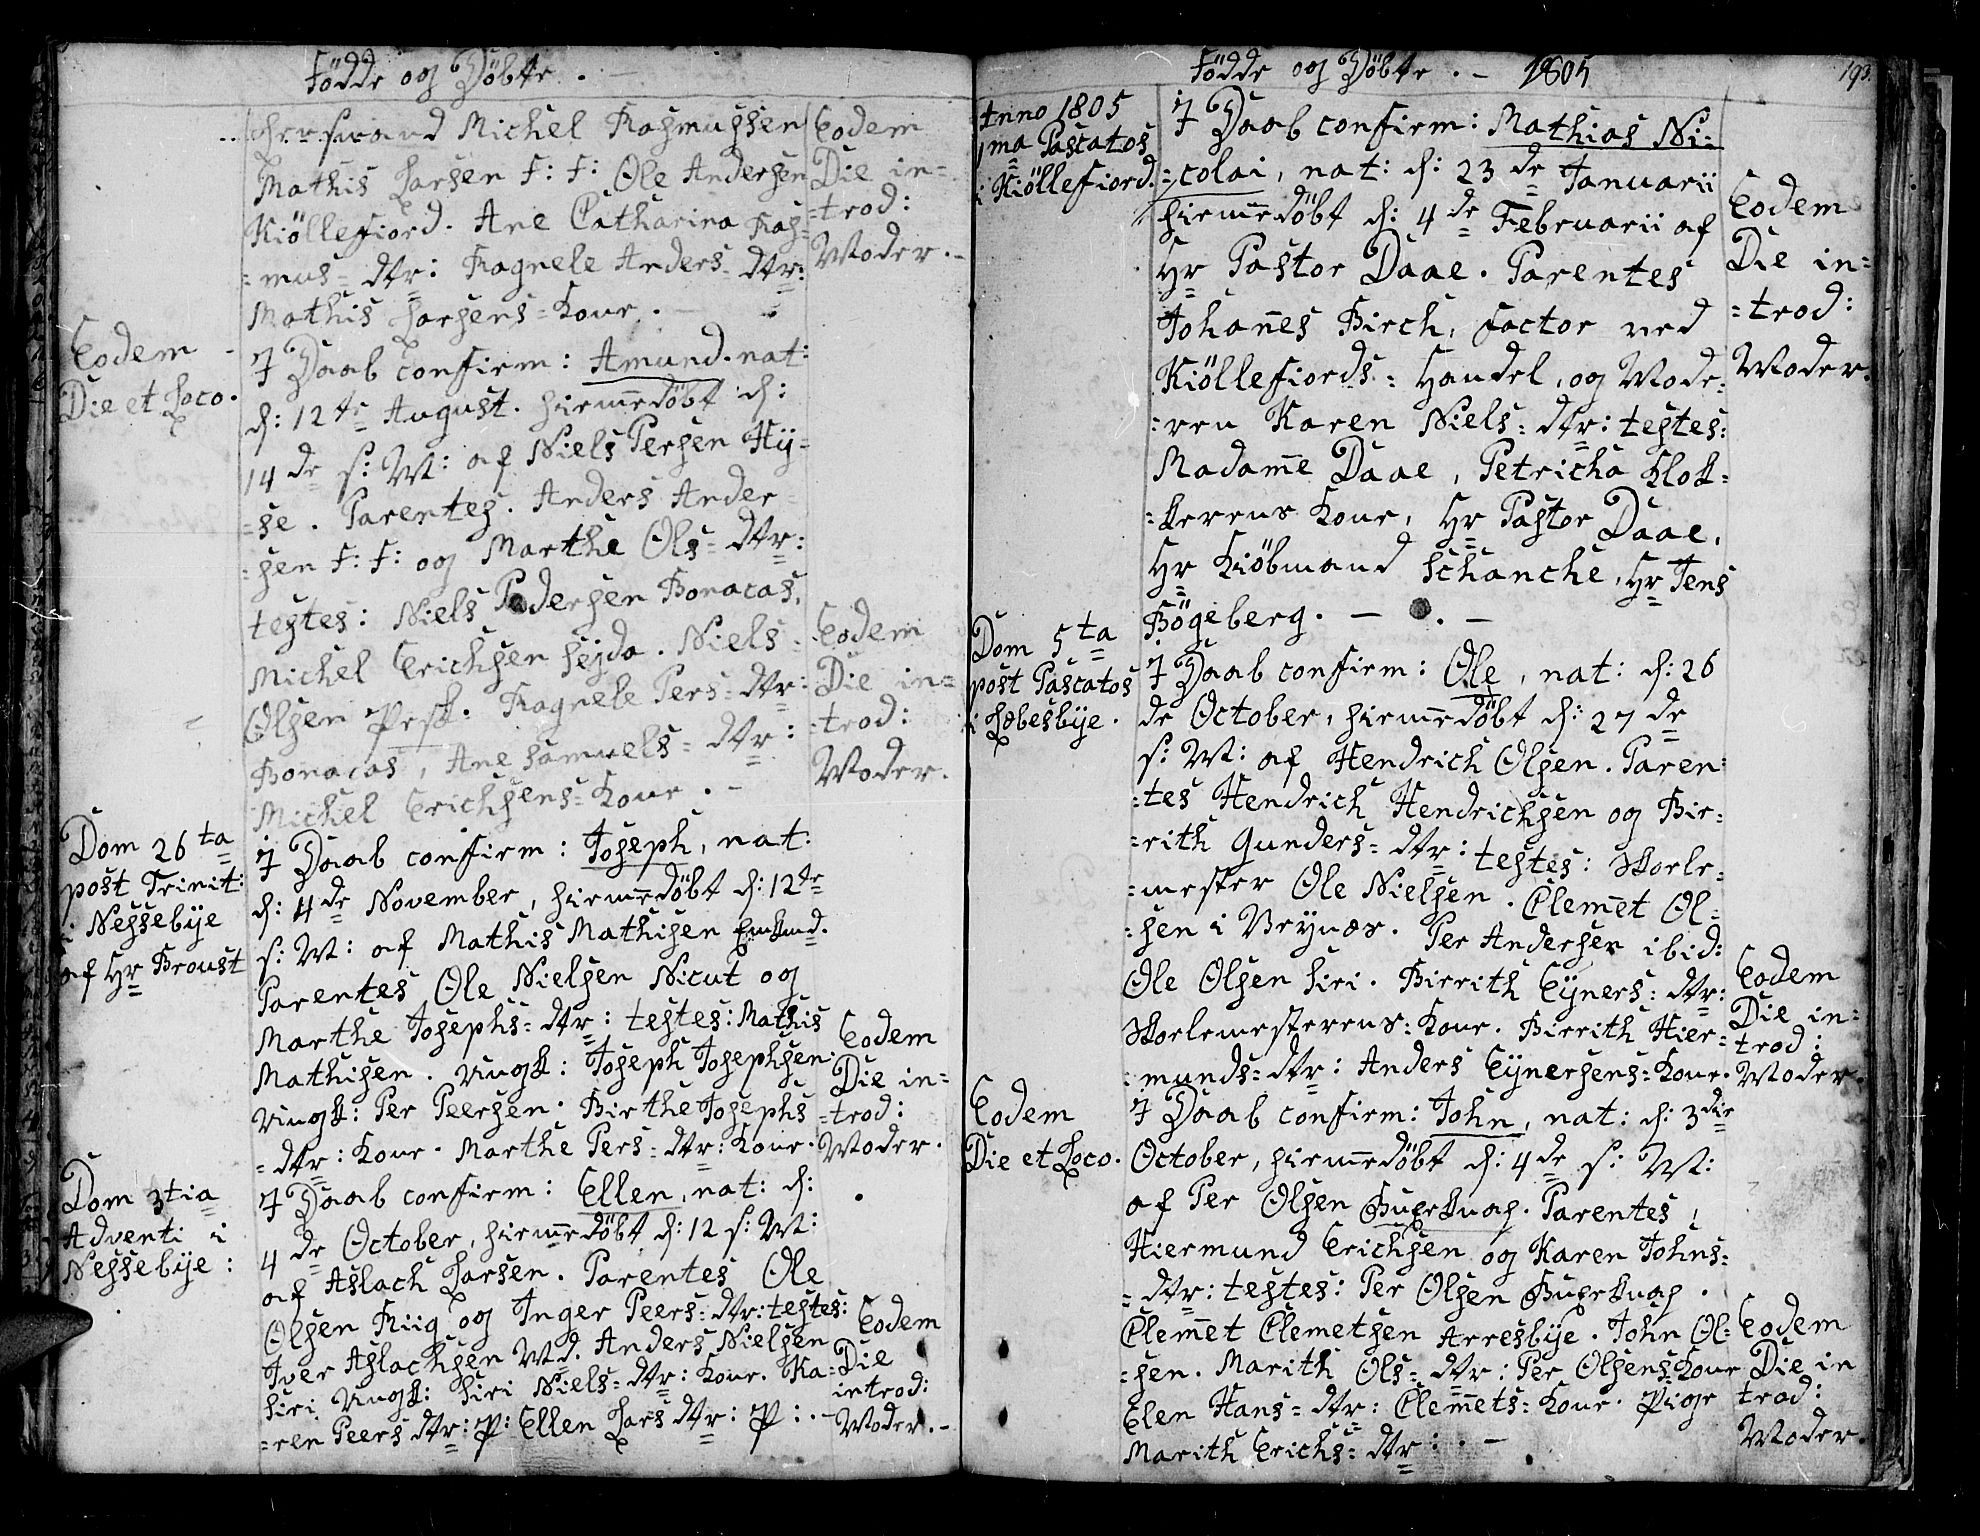 Födde og Döbte. –
Michel Rasmussen
Mathis Larsen F: F: Ole Andersen
Kiöllefiord. Ane Catharina Ras-
=mus= dtr: Ragnele Anders= dtr:
Mathis Larsens= Kone. –
Eodem
Die in=
=trod:
Moder. –
Eodem
Die et Loco.
I Daab confirm: Amund. nat:
d: 12te August. hiemmedöbt d:
14de s: M: af Niels Persen Hy=
=se. Parentes. Anders Ander=
=sen F: F: og Marthe Ols= dtr:
testes: Niels Pedersen Bonacas,
Michel Erichsen Sejda. Niels=
Olsen Presk. Ragnele Pers= dtr:
Bonacas, Ane Samuels= dtr:
Michel Erichsens= Kone. –
Eodem
Die in=
=trod:
Moder.
Dom 26ta
post Trinit:
i Nessebÿe
af Hr Broust
I Daab confirm: Joseph, nat:
d: 4de November, hiemmedöbt d: 12te
s: M: af Mathis Mathisen
Parentes Ole Nielsen Nicut og
Marthe Josephs= dtr: testes: Mathis
Mathisen. Ungk: Joseph Josephsen.
Ungk: Per Peersen. Birthe Josephs
= dtr: Kone. Marthe Pers= dtr: Kone.
Eodem
Die in=
=trod:
Moder.
Dom 3tia
Adventi i
Nessebÿe:
I Daab confirm: Ellen, nat: d:
4de October, hiemmedöbt d: 12 s: M:
af Aslach Larsen. Parentes Ole
Olsen Riig og Inger Peers= dtr: testes:
Iver Aslachsen Md. Anders Nielsen
Siri Ungk: Siri Niels= dtr: Kone. Ka=
=ren Peers dtr: P: Ellen Lars dtr: P: . –
Eodem
Die
introd:
Moder. –
Födde og Döbte. – 1805
193.
Anno 1805
1ma Pascatos
i Kiöllefiord.
I Daab confirm: Mathias Ni=
=colai, nat: d: 23de Januarii
hiemmedöbt d: 4de Februarii af
Hr Pastor Daae. Parentes
Johannes Birch, Factor ved
Kiöllefiords= Handel, og Mode=
=ren Karen Niels= dtr: testes:
Madame Daae, Petricha Klok=
=kerens Kone, Hr Pastor Daae,
Hr Kiöbmand Schanche, Hr Jens
Bögeberg. – . –
Eodem
Die in=
=trod:
Moder.
Dom 5ta
post Pascatos
i Lebesbÿe.
I Daab confirm: Ole, nat: d: 26
de October, hiemmedöbt d: 27de
s: M: af Hendrich Olsen. Paren=
=tes Hendrich Hendrichsen og Bir=
=rith Gunders= dtr: testes: Skole=
=mester Ole Nielsen. Clemet Ol=
=sen i Veÿnæs. Per Andersen ibid:
Ole Olsen Siri. Birrith Eÿners= dtr:
Skolemesterens= Kone. Birrith Hier=
=munds= dtr: Anders Eÿnersens= Kone.
Eodem
Die in=
trod:
Moder.
Eodem
Die et Loco.
I Daab confirm: John, nat: d: 3die
October, hiemmedöbt d: 4de s: M:
af Per Olsen Parentes,
Hiermund Erichsen og Karen Johns=
= dtr: testes: Per Olsen
Clemet Clemetsen Arresbÿe. John Ol=
=sen. Marith Ols= dtr: Per Olsens Kone
Elen Hans= dtr: Clemets= Kone. Pige
Marith Erichs= dtr: . –
Eodem
Die in
trod:
Moder.